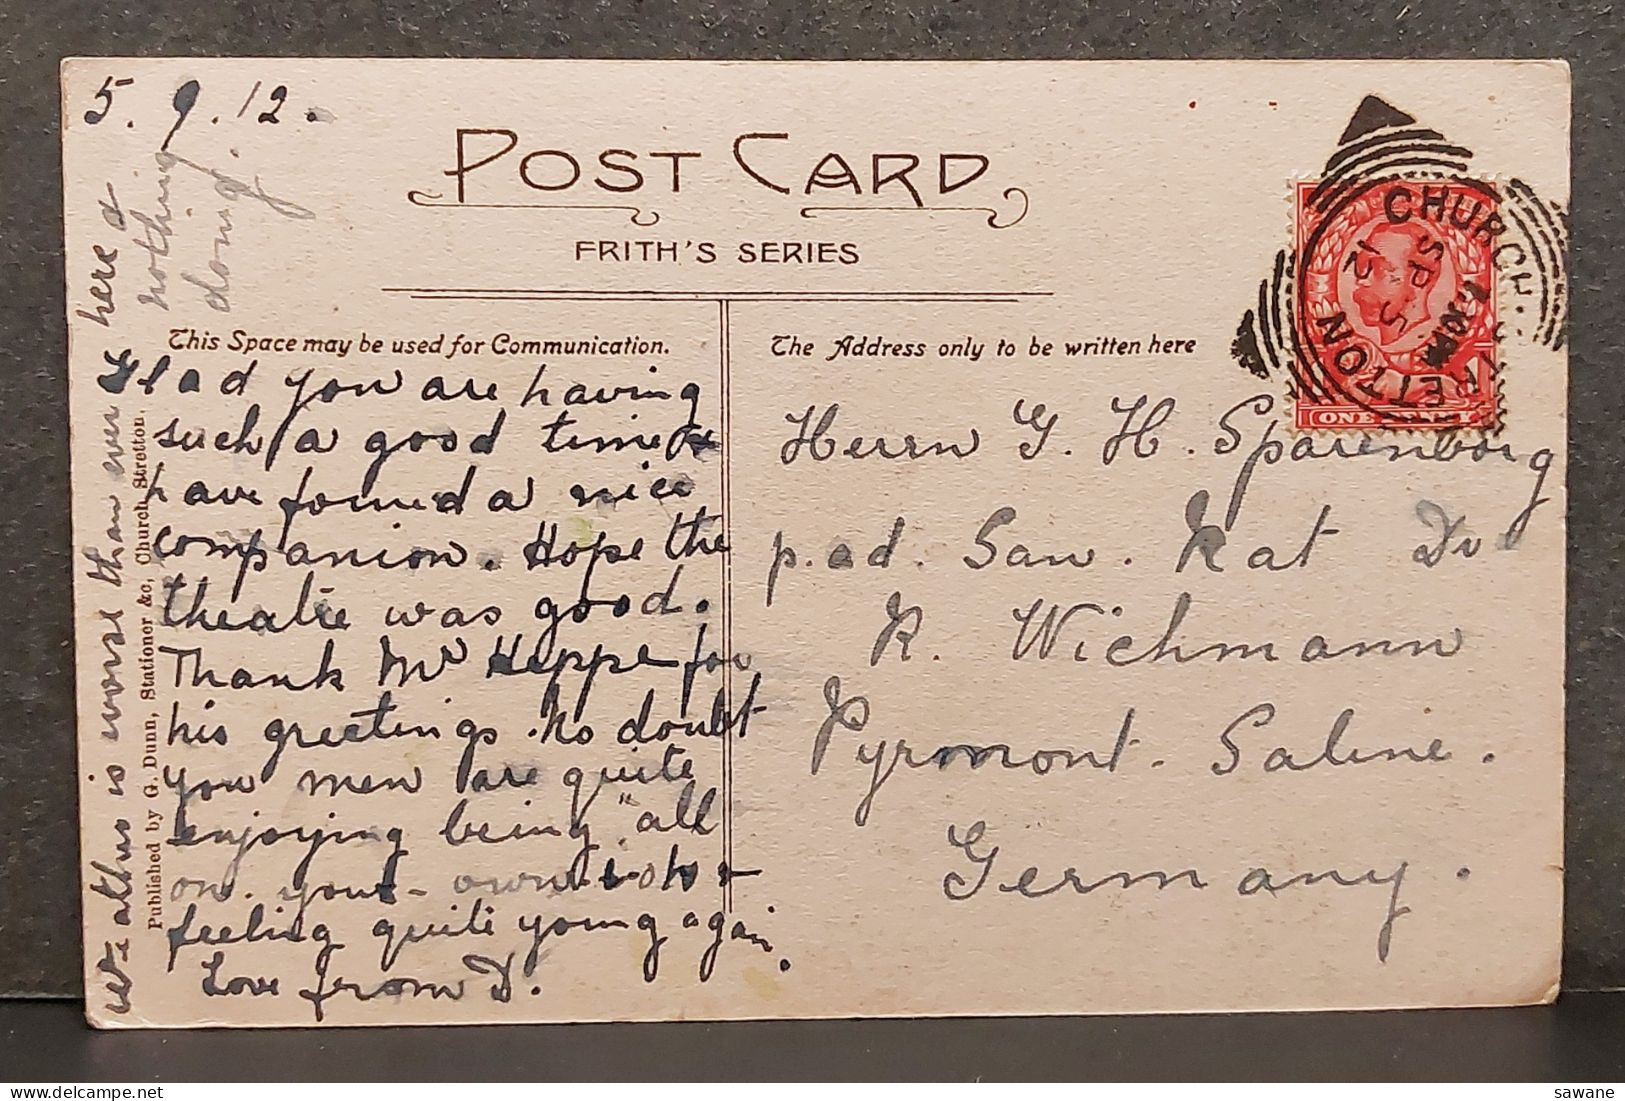 5.9.12.
POST CARD
FRITH'S SERIES
This Space may be used for Communication.
The Address only to be written here
Glad you are having
such a good time &
have found a nice
companion. Hope the
theatre was good.
Thank Mr Heppe for
his greetings. No doubt
you men are quite
enjoying being "all
on your own
feeling quite young again.
Love from D.
Weather is worse than ever here &
nothing
doing.
Published by G. Dunn, Stationer &c, Church Stretton.
Herrn G. H. Sparenborg
p. ad. San. Rat Dr
R. Wichmann
Pyrmont. Saline.
Germany.
CHURCH STRETTON
SP 5
12
ONE PENNY
sawane